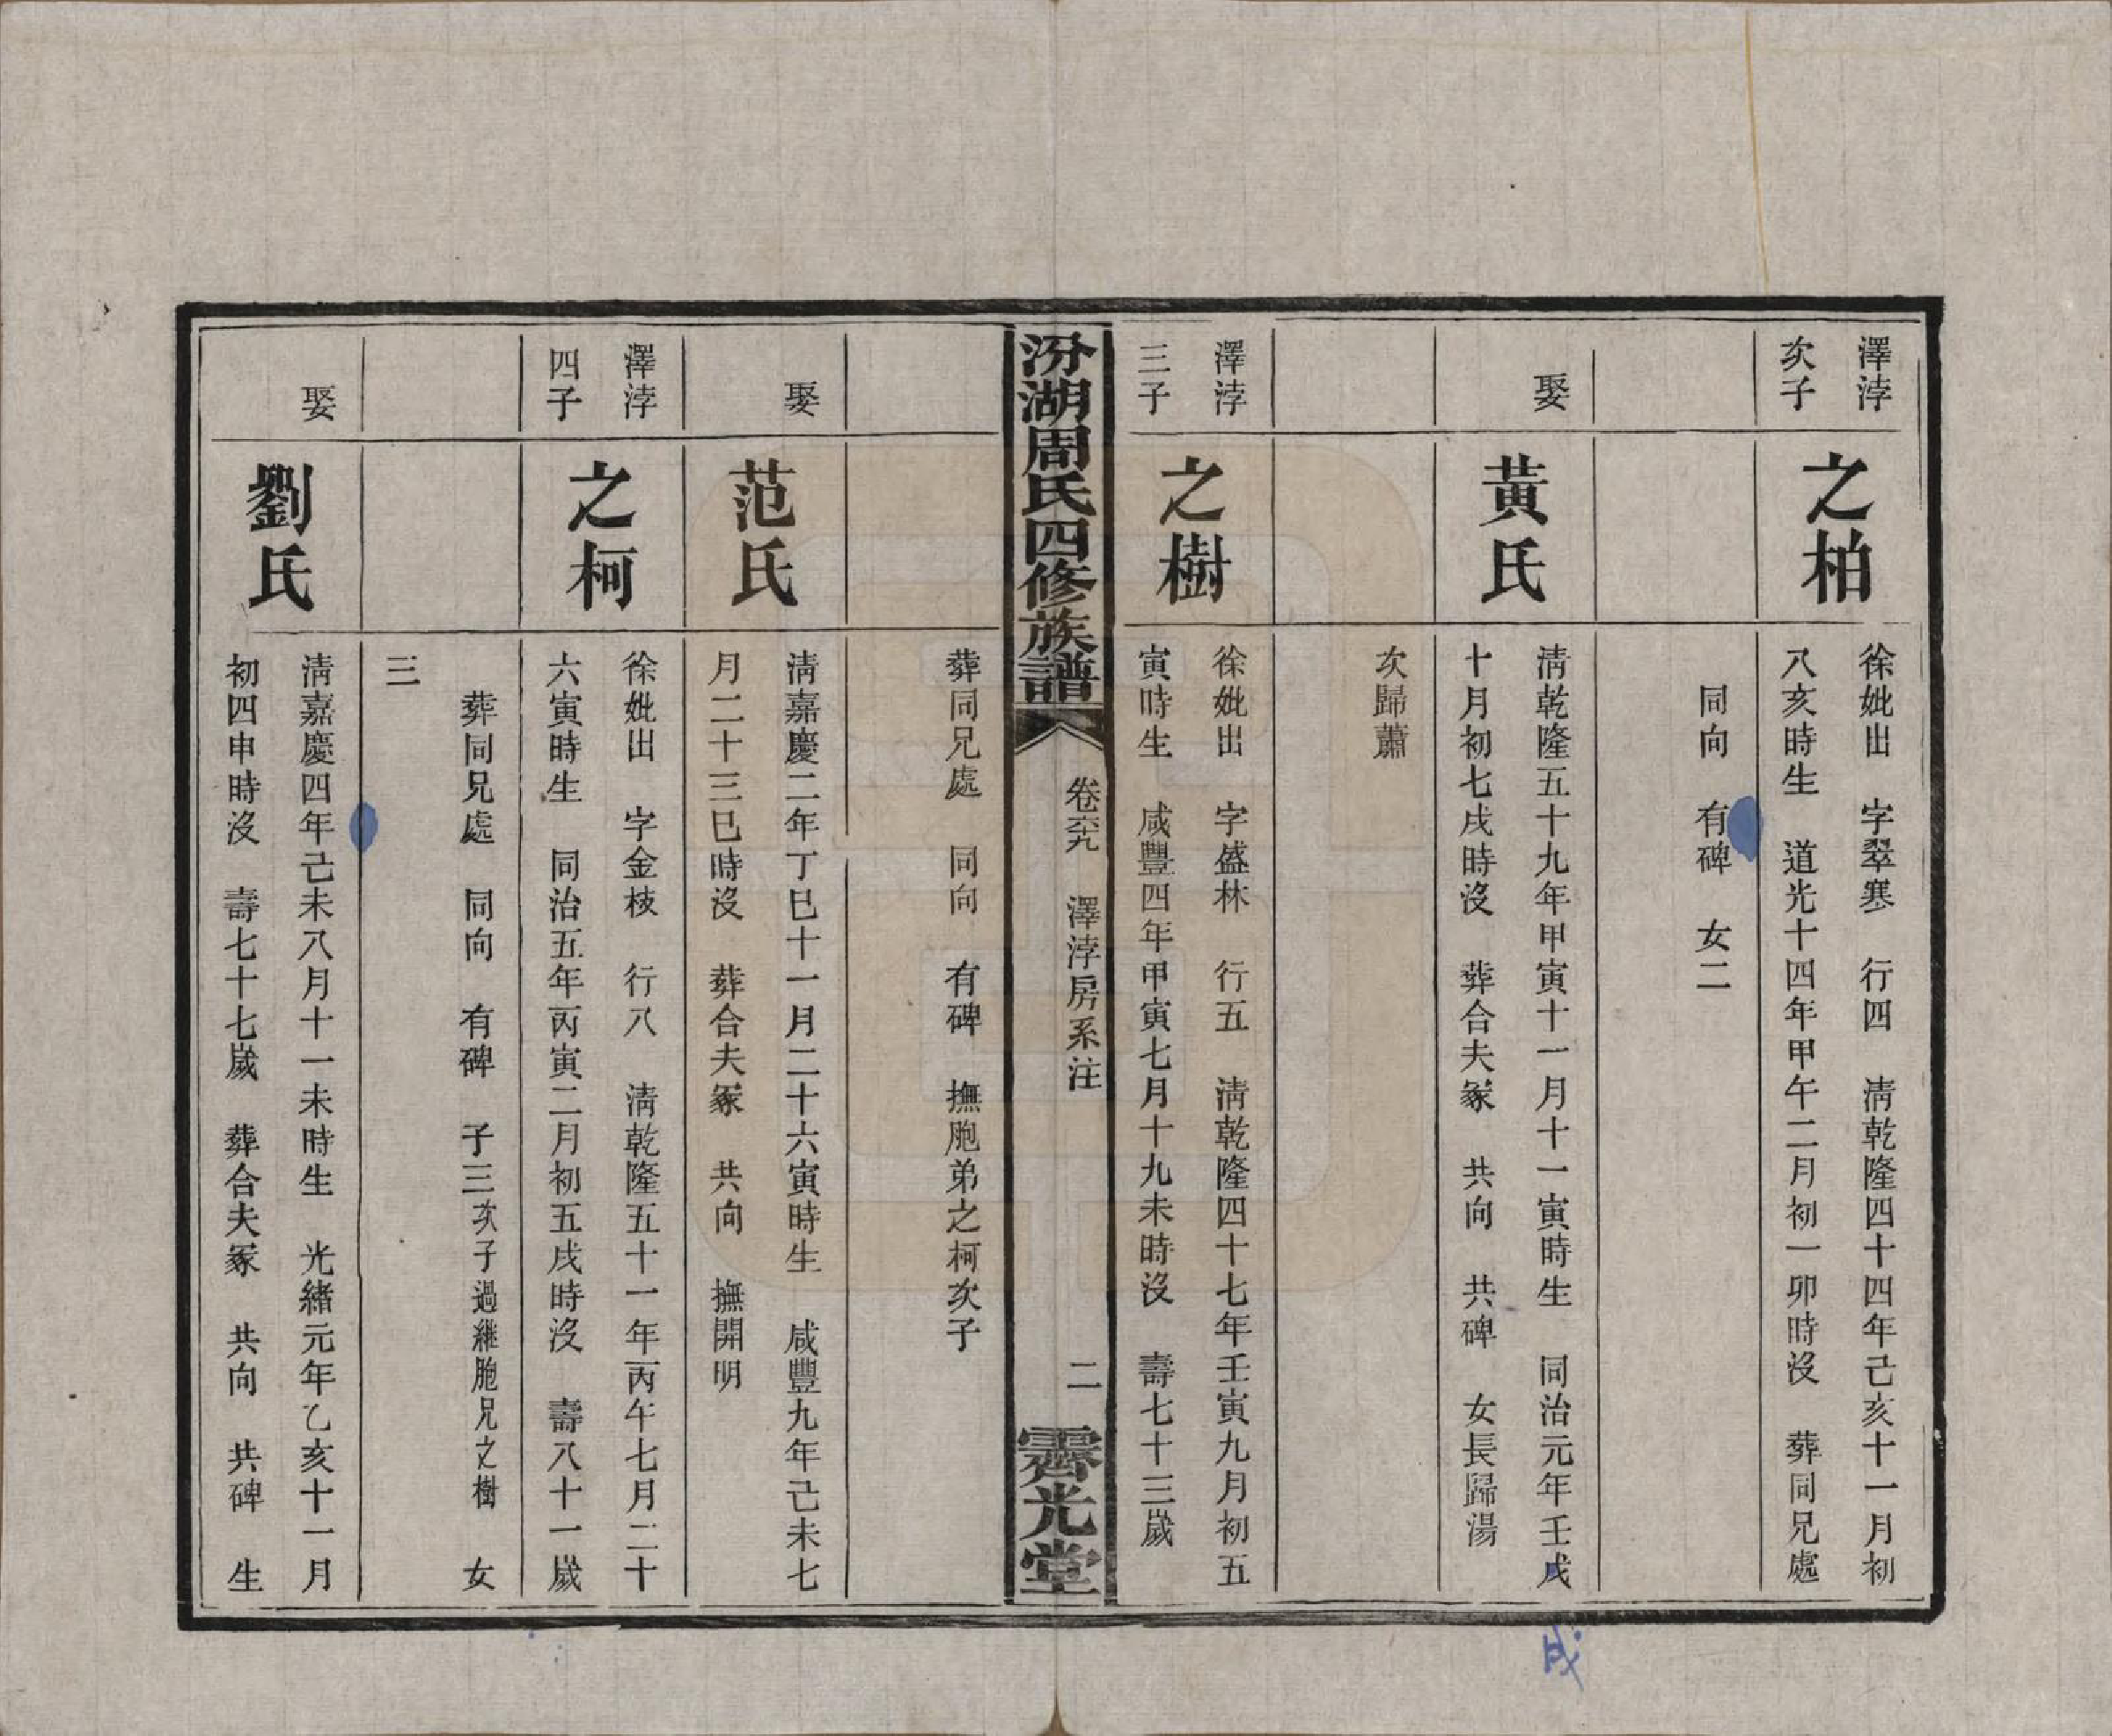 澤渟
次子
之柏
徐妣出　字翠寒　行四　淸乾隆四十四年己亥十一月初
八亥時生　道光十四年甲午二月初一卯時沒　葬同兄處
同向　有碑　女二
娶
黃氏
淸乾隆五十九年甲寅十一月十一寅時生　同治元年壬戌
十月初七戌時沒　葬合夫冢　共向　共碑　女長歸湯
次歸蕭
澤渟
三子
之樹
徐妣出　字盛林　行五　淸乾隆四十七年壬寅九月初五
寅時生　咸豐四年甲寅七月十九未時沒　壽七十三嵗
汾湖周氏四修族譜
卷六九　澤渟房系注
二
霽光堂
葬同兄處　同向　有碑　撫胞弟之柯次子
娶
范氏
淸嘉慶二年丁巳十一月二十六寅時生　咸豐九年己未七
月二十三巳時沒　葬合夫冢　共向　撫開明
澤渟
四子
之柯
徐妣出　字金枝　行八　淸乾隆五十一年丙午七月二十
六寅時生　同治五年丙寅二月初五戌時沒　壽八十一嵗
葬同兄處　同向　有碑　子三次子過繼胞兄之樹　女
三
娶
劉氏
淸嘉慶四年己未八月十一未時生　光緒元年乙亥十一月
初四申時沒　壽七十七嵗　葬合夫冢　共向　共碑　生
戌